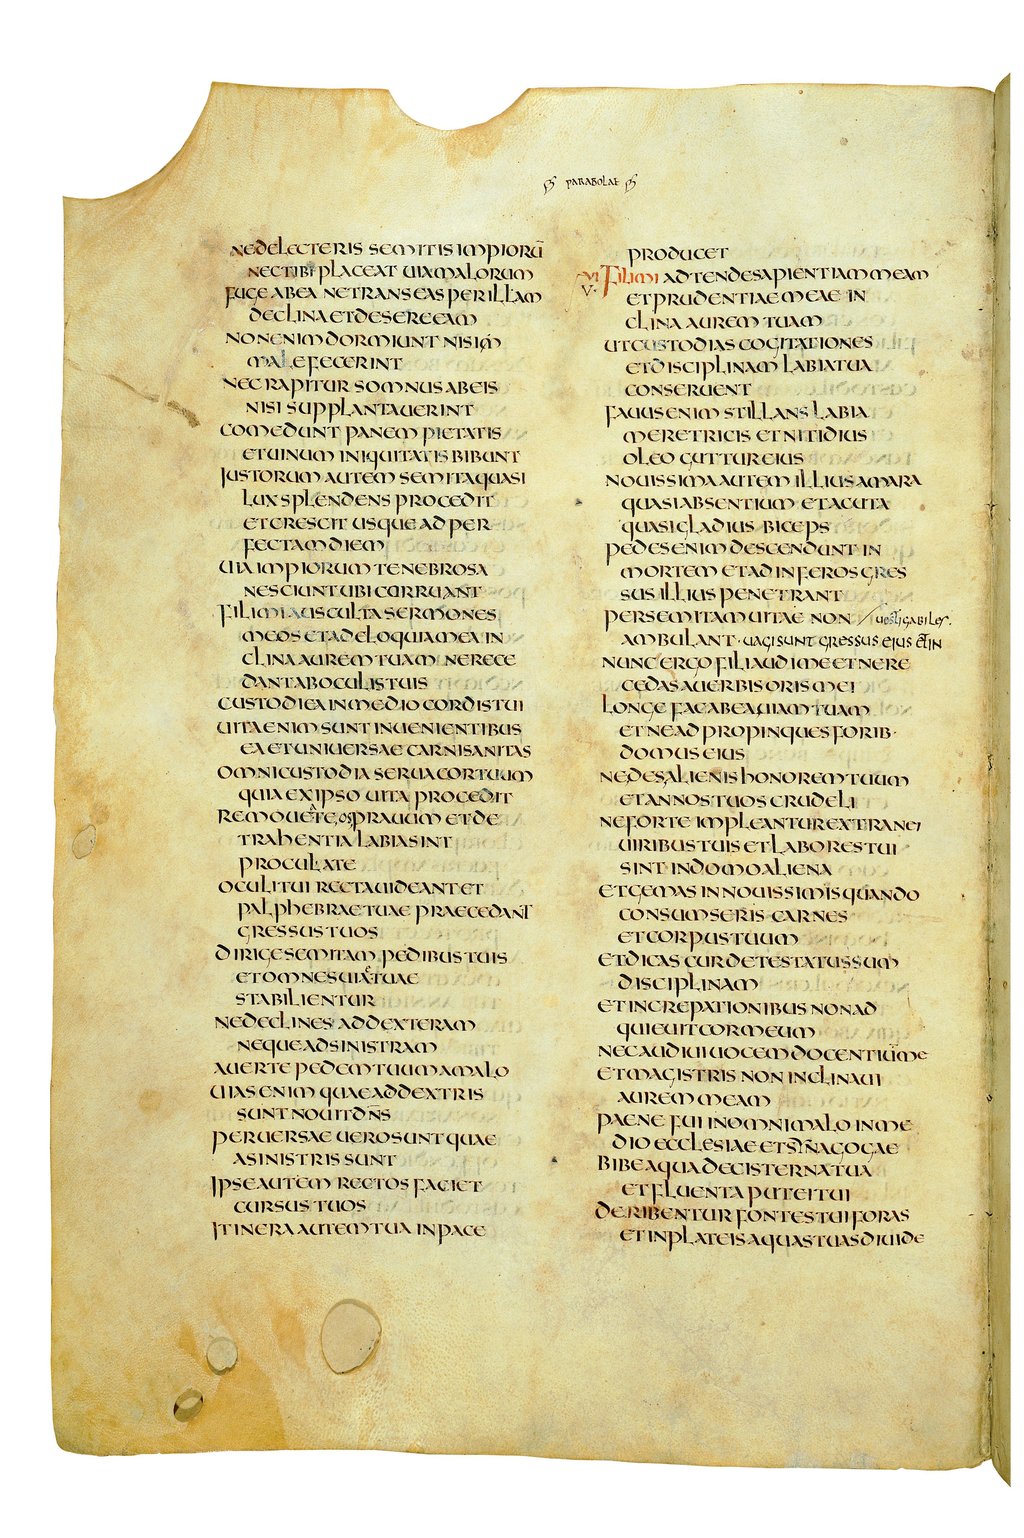 PARABOLAE
NEDELECTERIS SEMITIS IMPIORŪ
NECTIBI PLACEAT UIA MALORUM
FUGE ABEA NETRANSEAS PER ILLAM
DECLINA ET DESERE EAM
NON ENIM DORMIUNT NISI
MALEFECERINT
NEC RAPITUR SOMNUS ABEIS
NISI SUPPLANTAUERINT
COMEDUNT PANEM PIETATIS
ET UINUM INIQUITATIS BIBUNT
JUSTORUM AUTEM SEMITA QUASI
LUX SPLENDENS PROCEDIT
ET CRESCIT USQUE AD PER
FECTAM DIEM
UIA IMPIORUM TENEBROSA
NESCIUNT UBI CORRUANT
FILI MI AUSCULTA SERMONES
MEOS ET AD ELOQUIA MEA IN
CLINA AUREM TUAM NE RECE
DANT ABOCULIS TUIS
CUSTODI EA IN MEDIO CORDIS TUI
UITA ENIM SUNT INUENIENTIBUS
EA ET UNIUERSAE CARNI SANITAS
OMNI CUSTODIA SERUA COR TUUM
QUIA EX IPSO UITA PROCEDIT
REMOUE A TE OS PRAUUM ET DE
TRAHENTIA LABIA SINT
PROCUL A TE
OCULI TUI RECTA UIDEANT ET
PALPHEBRAE TUAE PRAECEDANT
GRESSUS TUOS
DIRIGE SEMITAM PEDIBUS TUIS
ET OMNES UIAE TUAE
STABILIENTUR
NE DECLINES AD DEXTERAM
NEQUE AD SINISTRAM
AUERTE PEDEM TUUM A MALO
UIAS ENIM QUAE A DEXTRIS
SUNT NOUIT DN̄S
PERUERSAE UERO SUNT QUAE
A SINISTRIS SUNT
IPSE AUTEM RECTOS FACIET
CURSUS TUOS
ITINERA AUTEM TUA IN PACE
PRODUCET
VI FILI MI AD TENDE SAPIENTIAM MEAM
V ET PRUDENTIAE MEAE IN
CLINA AUREM TUAM
UT CUSTODIAS COGITATIONES
ET DISCIPLINAM LABIA TUA
CONSERUENT
FAUUS ENIM STILLANS LABIA
MERETRICIS ET NITIDIUS
OLEO GUTTUR EIUS
NOUISSIMA AUTEM ILLIUS AMARA
QUASI ABSENTIUM ET ACUTA
QUASI GLADIUS BICEPS
PEDES ENIM DESCENDUNT IN
MORTEM ET AD INFEROS GRES
SUS ILLIUS PENETRANT
PER SEMITAM UITAE NON UESTIGABILES.
AMBULANT · UAGI SUNT GRESSUS EIUS ET IN
NUNC ERGO FILI AUDI ME ET NE RE
CEDAS A UERBIS ORIS MEI
LONGE FAC AB EA UIAM TUAM
ET NE ADPROPINQUES FORIB·
DOMUS EIUS
NE DES ALIENIS HONOREM TUUM
ET ANNOS TUOS CRUDELI
NE FORTE IMPLEANTUR EXTRANEI
UIRIBUS TUIS ET LABORES TUI
SINT IN DOMO ALIENA
ET GEMAS IN NOUISSIMIS QUANDO
CONSUMSERIS CARNES
ET CORPUS TUUM
ET DICAS CUR DETESTATUS SUM
DISCIPLINAM
ET INCREPATIONIBUS NON AD
QUIEUIT COR MEUM
NEC AUDIUI UOCEM DOCENTIUM ME
ET MAGISTRIS NON INCLINAUI
AUREM MEAM
PAENE FUI IN OMNI MALO IN ME
DIO ECCLESIAE ET SINAGOGAE
BIBE AQUA DE CISTERNA TUA
ET FLUENTA PUTEI TUI
DERIBENTUR FONTES TUI FORAS
ET IN PLATEIS AQUAS TUAS DIUIDE